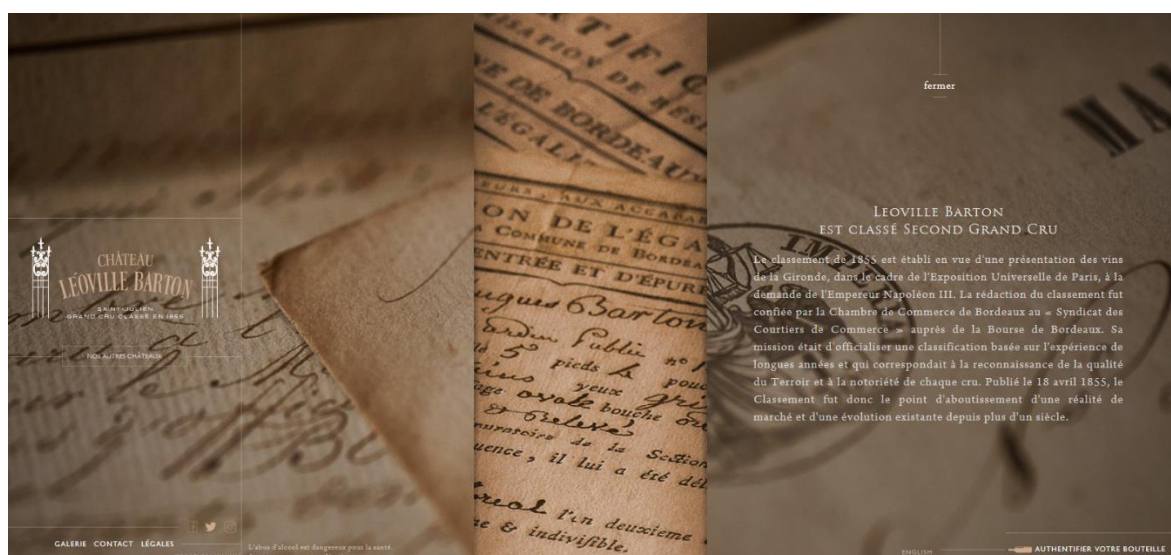 CHÂTEAU
LÉOVILLE BARTON
SAINT-JULIEN
GRAND CRU CLASSÉ EN 1855
NOS AUTRES CHÂTEAUX
GALERIE CONTACT LÉGALES
L'abus d'alcool est dangereux pour la santé.
DE BORDEAUX
ÉGALI
EURS, AUX ACCAPA
ON DE L'ÉGA
COMMUNE DE BORDEA
ENTRÉE ET D'ÉPUR
ugues Barton
ardin Public no
5 pieds 4 pouc
yeux gri
age ovale bouche
& Relevé
de la Section
uence, il lui a été dél
l'un deuxieme
& indivifible.
fermer
LEOVILLE BARTON
EST CLASSÉ SECOND GRAND CRU
Le classement de 1855 est établi en vue d'une présentation des vins
de la Gironde, dans le cadre de l'Exposition Universelle de Paris, à la
demande de l'Empereur Napoléon III. La rédaction du classement fut
confiée par la Chambre de Commerce de Bordeaux au « Syndicat des
Courtiers de Commerce » auprès de la Bourse de Bordeaux. Sa
mission était d'officialiser une classification basée sur l'expérience de
longues années et qui correspondait à la reconnaissance de la qualité
du Terroir et à la notoriété de chaque cru. Publié le 18 avril 1855, le
Classement fut donc le point d'aboutissement d'une réalité de
marché et d'une évolution existante depuis plus d'un siècle.
ENGLISH
AUTHENTIFIER VOTRE BOUTEILLE